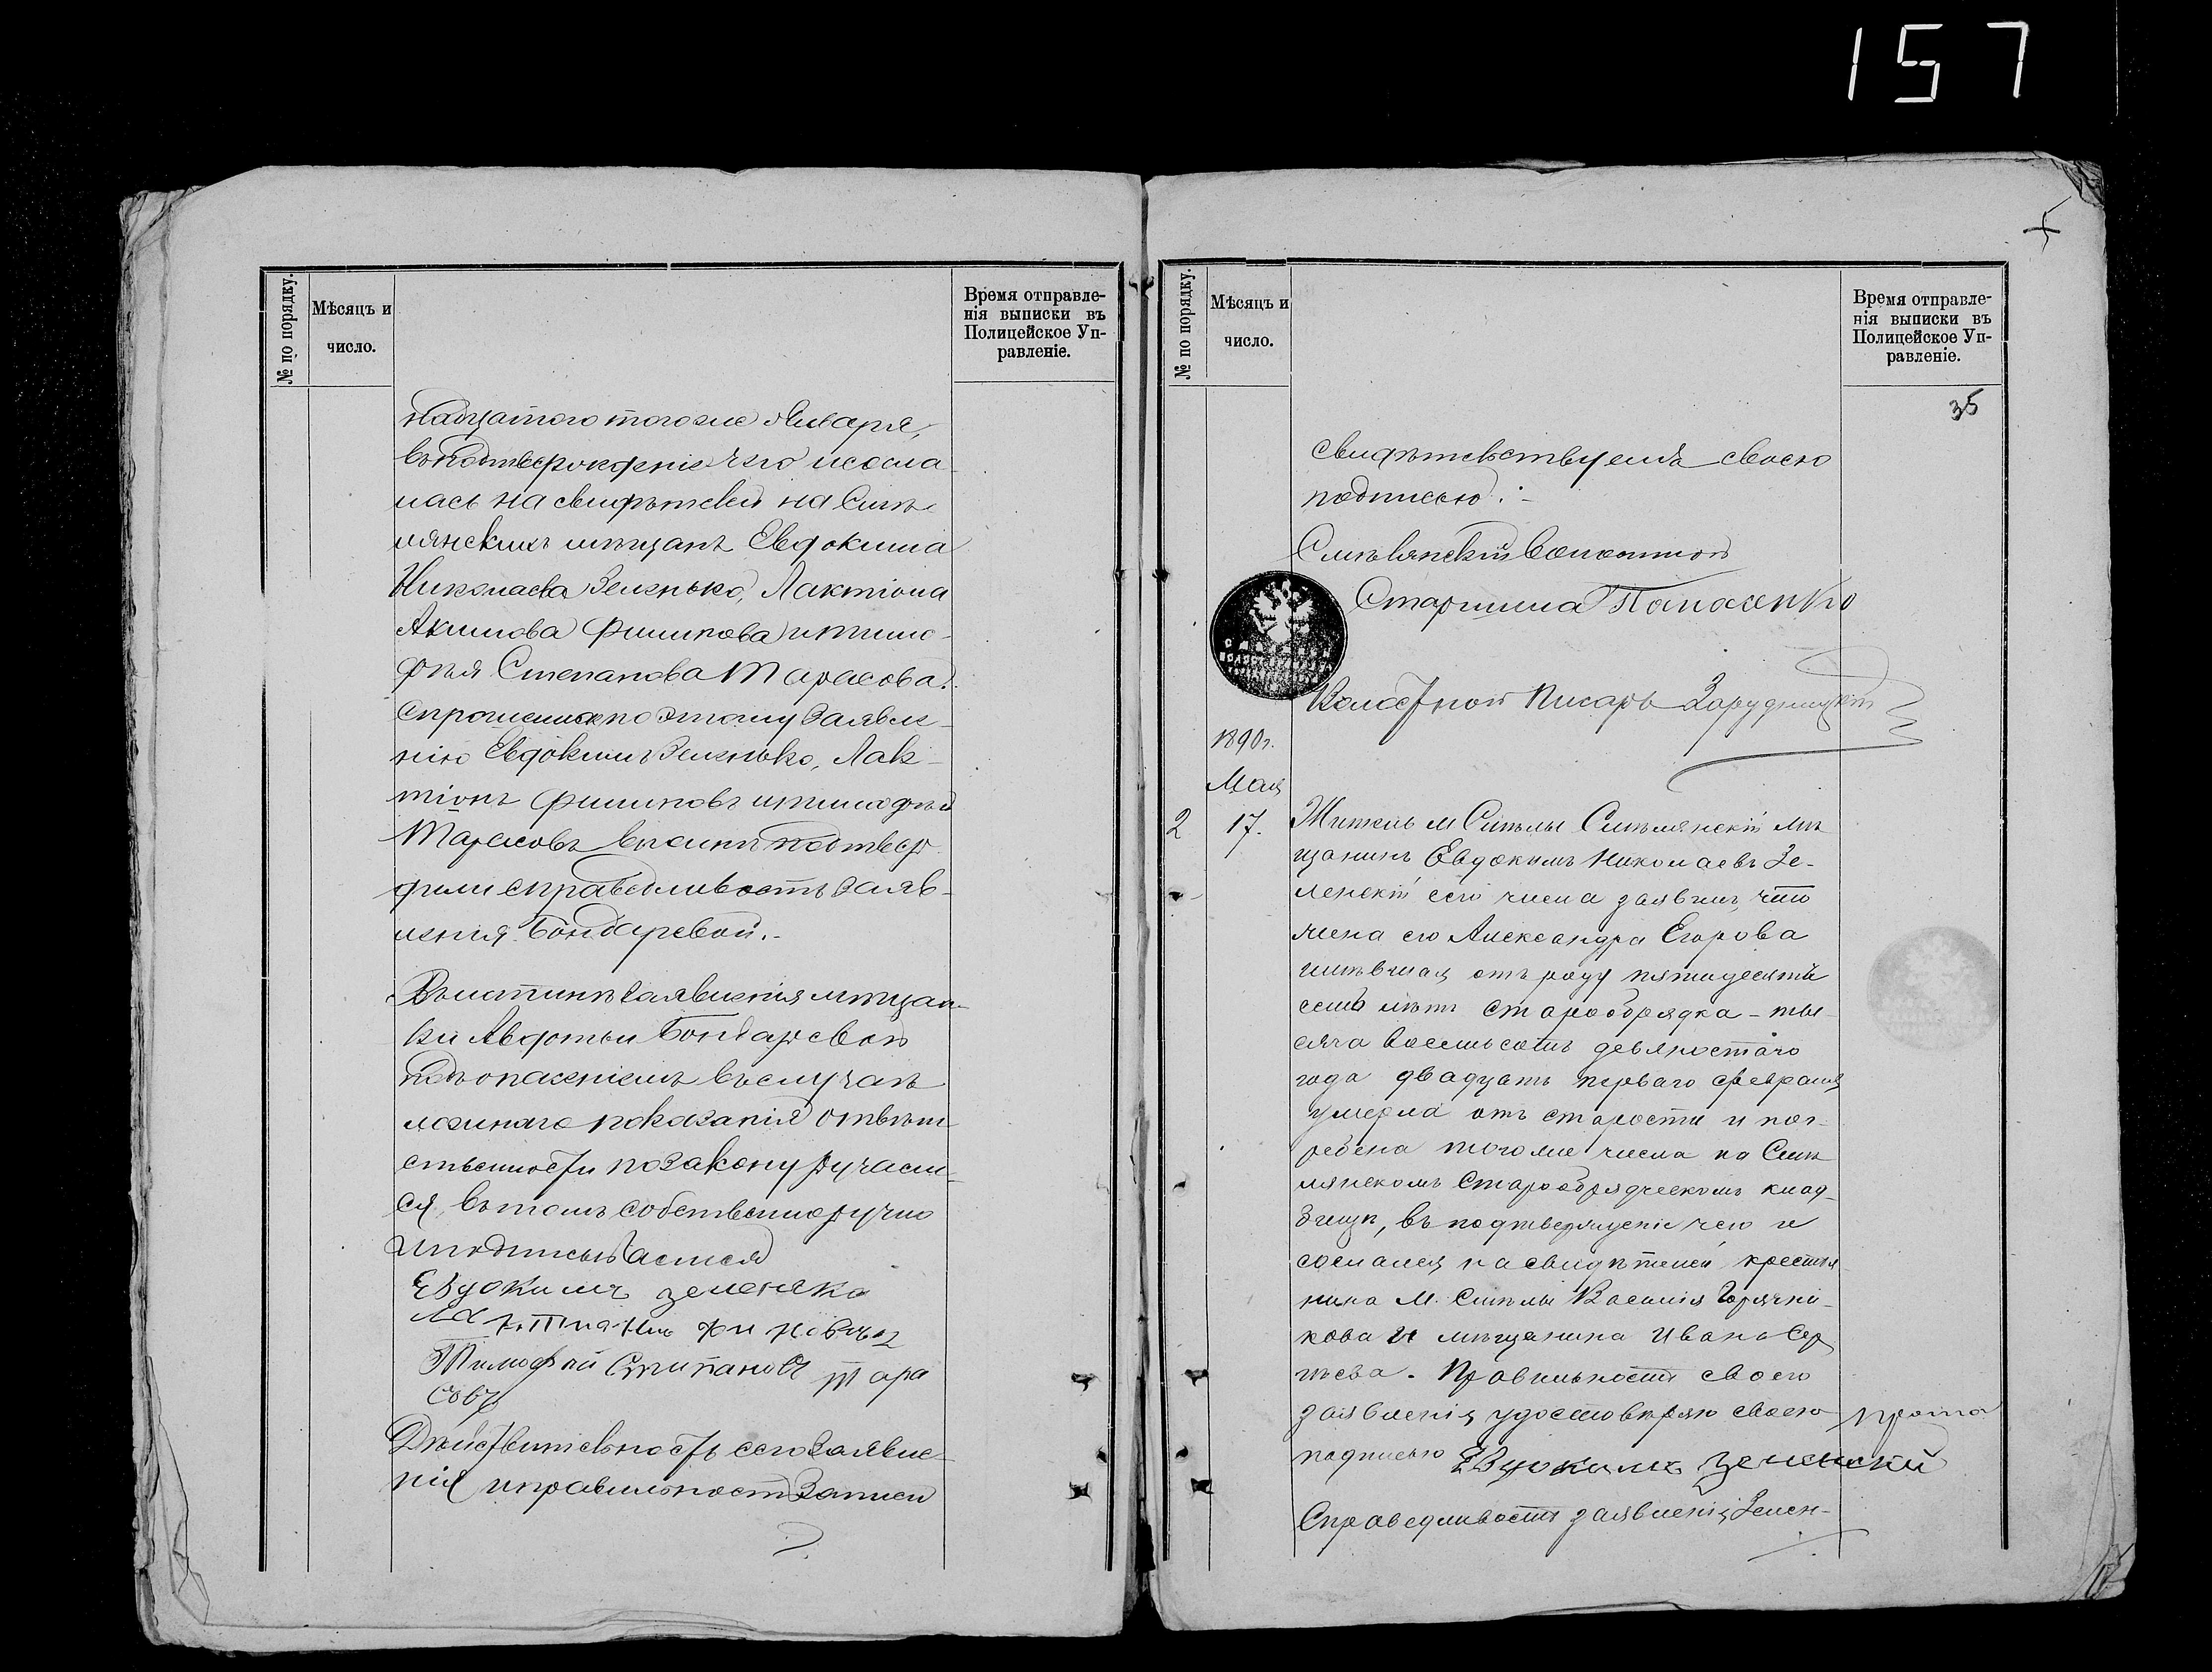 157
№ по порядку.
Мѣсяцъ и
число.
Время отправле-
нія выписки въ
Полицейское Уп-
равленіе.
надцатого того же Января,
въ подтвержденіе чего и сосла
лась на свидѣтелей на Смѣ
лянскихъ мѣщанъ Евдокима
Николаева Зеленько, Лактіона
Акимова Филипова и Тимо-
фѣя Степанова Тарасова.
Спрошенные по этому заявле-
нію Евдокимъ Зеленько, Лак-
тіонъ Филиповъ и Тимофѣй
Тарасовъ вполнѣ подтвер
дили справедливость заяв-
ленія Бондаревой.-
Въ истинѣ заявленія мѣщан-
ки Авдотьи Бондаревой
подъ опасеніемъ въ случаѣ
ложнаго показанія отвѣт-
ственности по закону ручаем-
ся, въ томъ собственноручно
и подписываемся
Евдокимъ зеленско
Тимофѣй Стипановъ Тара
совъ
Дѣйствительность сего заявле-
нія и правильность записи
№ по порядку.
Мѣсяцъ и
число.
Время отправле-
нія выписки въ
Полицейское Уп-
равленіе.
35
свидѣтельствуемъ своею
подписью:-
Смѣлянскій Волостной
Старшина
Волостной Писарь Зарудницкій
1890 г.
Мая
2 17. Житель м Смѣлы Смѣлянскій мѣ
щанинъ Евдокимъ Николаевъ Зе-
ленскій сего числа заявилъ, что
жена его Александра Егорова
имѣвшая отъ роду пятидесяти
семь лѣтъ старообрядка - ты-
сяча восемьсотъ девяностаго
года двадцать перваго февраля
умерла отъ старости и пог-
ребена того же числа на Смѣ
лянскомъ Старообрядческомъ клад-
бищѣ, въ подтвержденіе чего и
сослался на свидѣтелей крестья
нина м. Смѣлы Василія Горячни-
кова и мѣщанина Ивана Сер
гѣева. Правильность своего
заявленія удостовѣряю своею
подписью Евдокимъ зеленский
Справедливость заявленія Зелен-